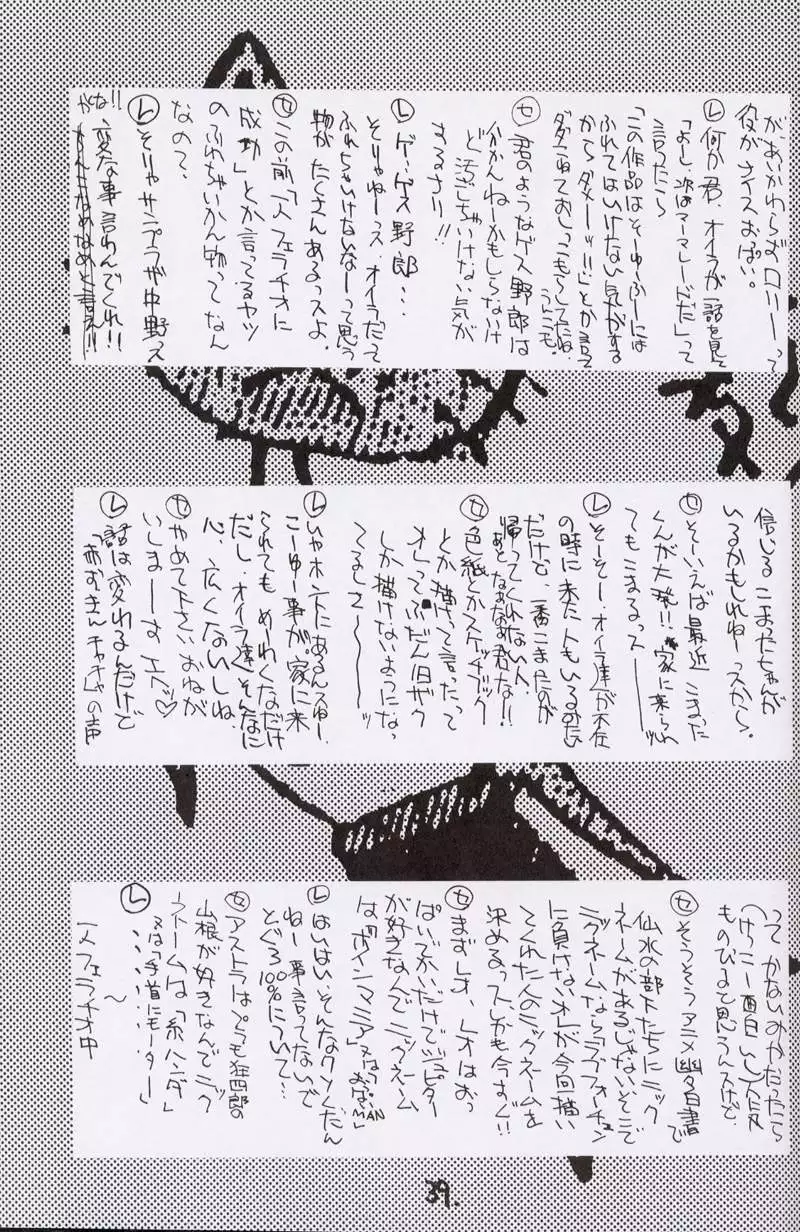 があいかわらずロリーって
役がナイスおっぱい。
Ⓛ何か君、オイラが話を見て
「よし、次はマーマレードだ」って
言ったら
「この作品はそーゆーふーには
ふれてはいけない気がする
からダメーッ!!」とか言って
ダダこねておしっこもらしてたね
Ⓢ君のようなゲス野郎は
わかんねーかもしらないけ
ど汚しちゃいけない気が
するっス!!
Ⓛゲ・ゲス野郎…
そりゃねーっス、オイラだって
ふれちゃいけないなーって思う
物がたくさんあるっスよ。
Ⓢこの前「一人フェラチオに
成功」とか言ってるヤツ
のふれちゃいかん物ってなん
なの?
Ⓛそりゃサンプラザ中野っス
がな!!変な事言わんでくれ!!
信じるこまったちゃんが
いるかもしれねーっスから。
Ⓢそーいえば最近こまった
くんが大発!!家に来られ
てもこまるっスーーッ
Ⓛそーそー、オイラ達が不在
の時に来た人もいるみたい
だけど、一番こまったのが
帰ってくれない人、
あとなぁなぁ君な!!
Ⓢ色紙とかスケッチブック
とか描けって言ったって
オレってふだんB5ザク
しか描けないようにな
てるしさーーーッ
Ⓛいやホントにあるんスゆー、
こーゆー事が。家に来
られてもめーわくなだけ
だし、オイラ達そんなに
心、広くないしね
Ⓢやめて下さいおねが
いしまーすエヘ♡
Ⓛ話は変わるんだけど
「赤ずきんチャチャ」の声
ってかないみかだったら
(けっこー面白いし)人気
ものびると思うんスけど、
Ⓢそうそうアニメ幽白書で
仙水の部下たちにニック
ネームがあるじゃないそこで
ニックネームならラブフォーチュン
に負けないオレが今回描い
てくれた人のニックネームを
決めるっスしかも今すぐ!!
Ⓢまずレオ、レオはおっ
ぱいでかいだけでジュピター
が好きなんでニックネーム
は「ボインマニア」又は「おっぱいMAN」
Ⓛはいはい、そんなクソくだん
ねー事言ってないで
とぐろ100%について…
Ⓢアストラはぷらも狂四郎の
山根が好きなんでニック
ネームは「糸ハンダ」
又は「手首にモーター」
Ⓛ…………
一人フェラチオ中
〜
39.